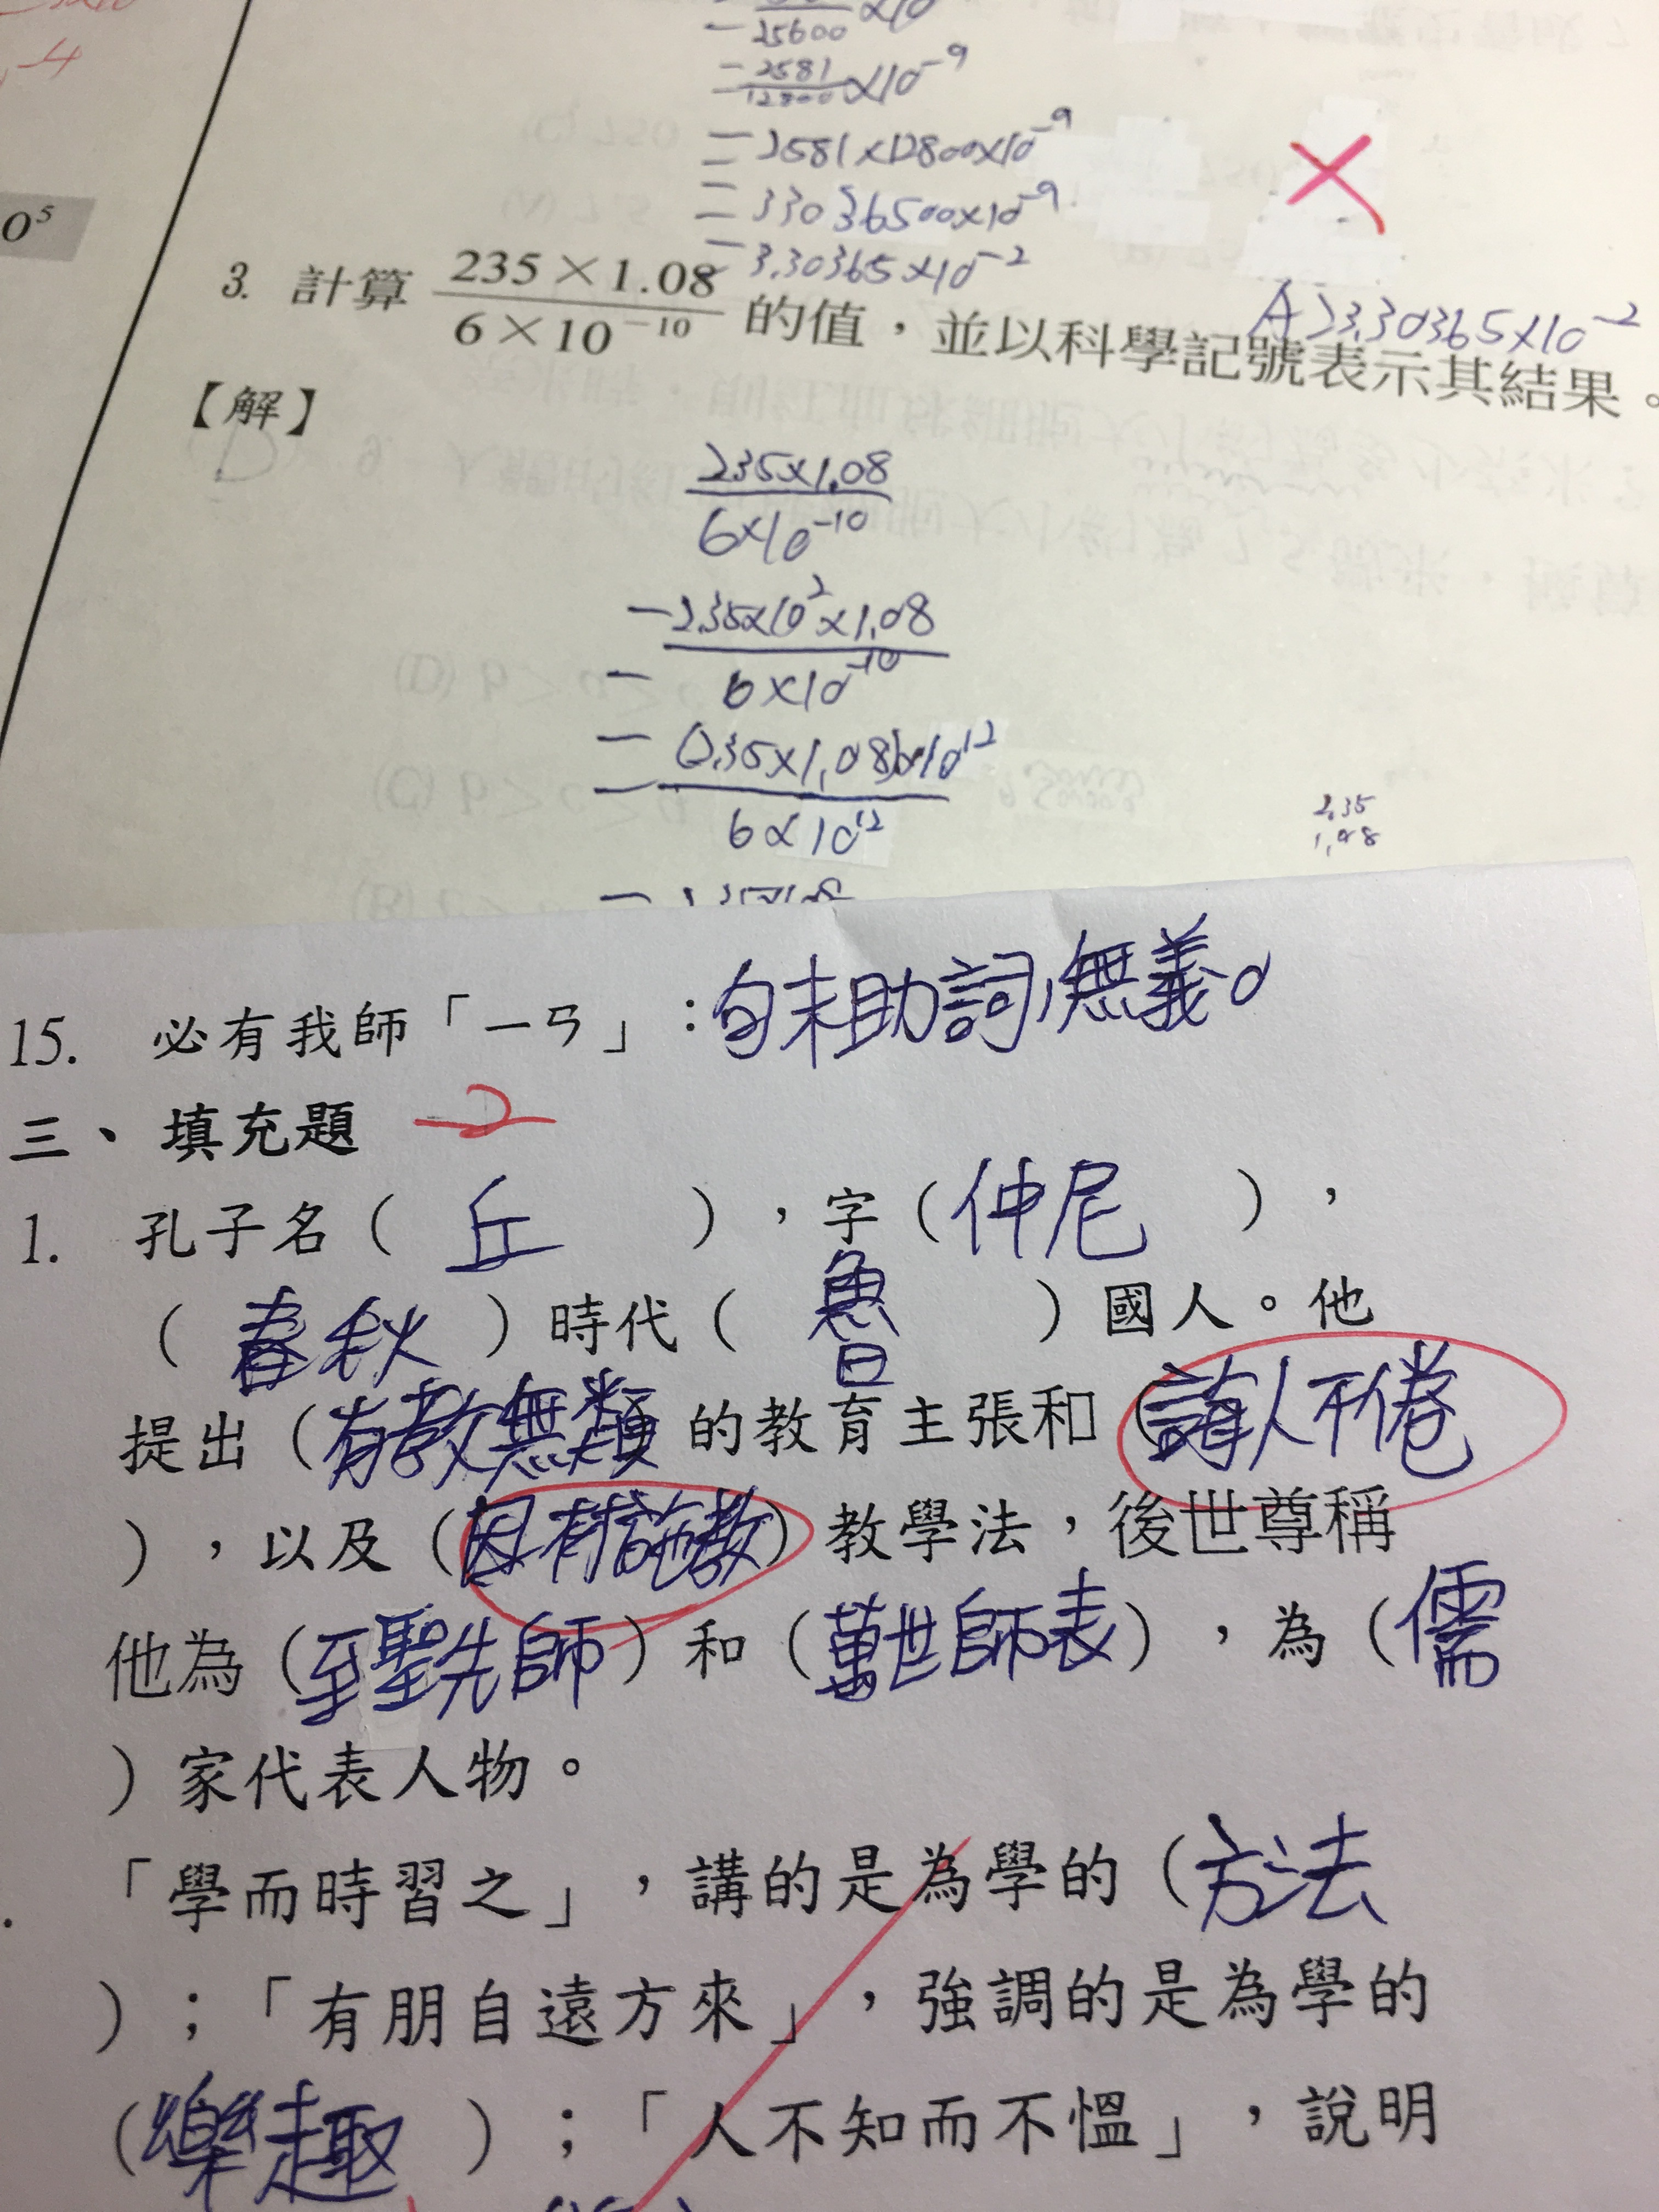 -4
25600
= 2581/12800 ×10⁻⁹
= 2581×12800×10⁻⁹
= 33036500×10⁻⁹
= 3.30365×10⁻²
A>3.30365×10⁻²
0⁵
3. 計算 235×1.08/6×10⁻¹⁰ 的值，並以科學記號表示其結果。
【解】
235×1.08/6×10⁻¹⁰
= 2.35×10²×1.08/6×10⁻¹⁰
= (2.35×1.08)×10¹²/6×10¹²
2.35
1.08
15. 必有我師「ㄧㄢ」：句末助詞，無義。
三、填充題 -2
1. 孔子名（丘），字（仲尼），
（春秋）時代（魯）國人。他
提出（有教無類 的教育主張和（誨人不倦
），以及（因材施教）教學法，後世尊稱
他為（至聖先師）和（萬世師表），為（儒
）家代表人物。
「學而時習之」，講的是為學的（方法
）；「有朋自遠方來」，強調的是為學的
（樂趣）；「人不知而不慍」，說明